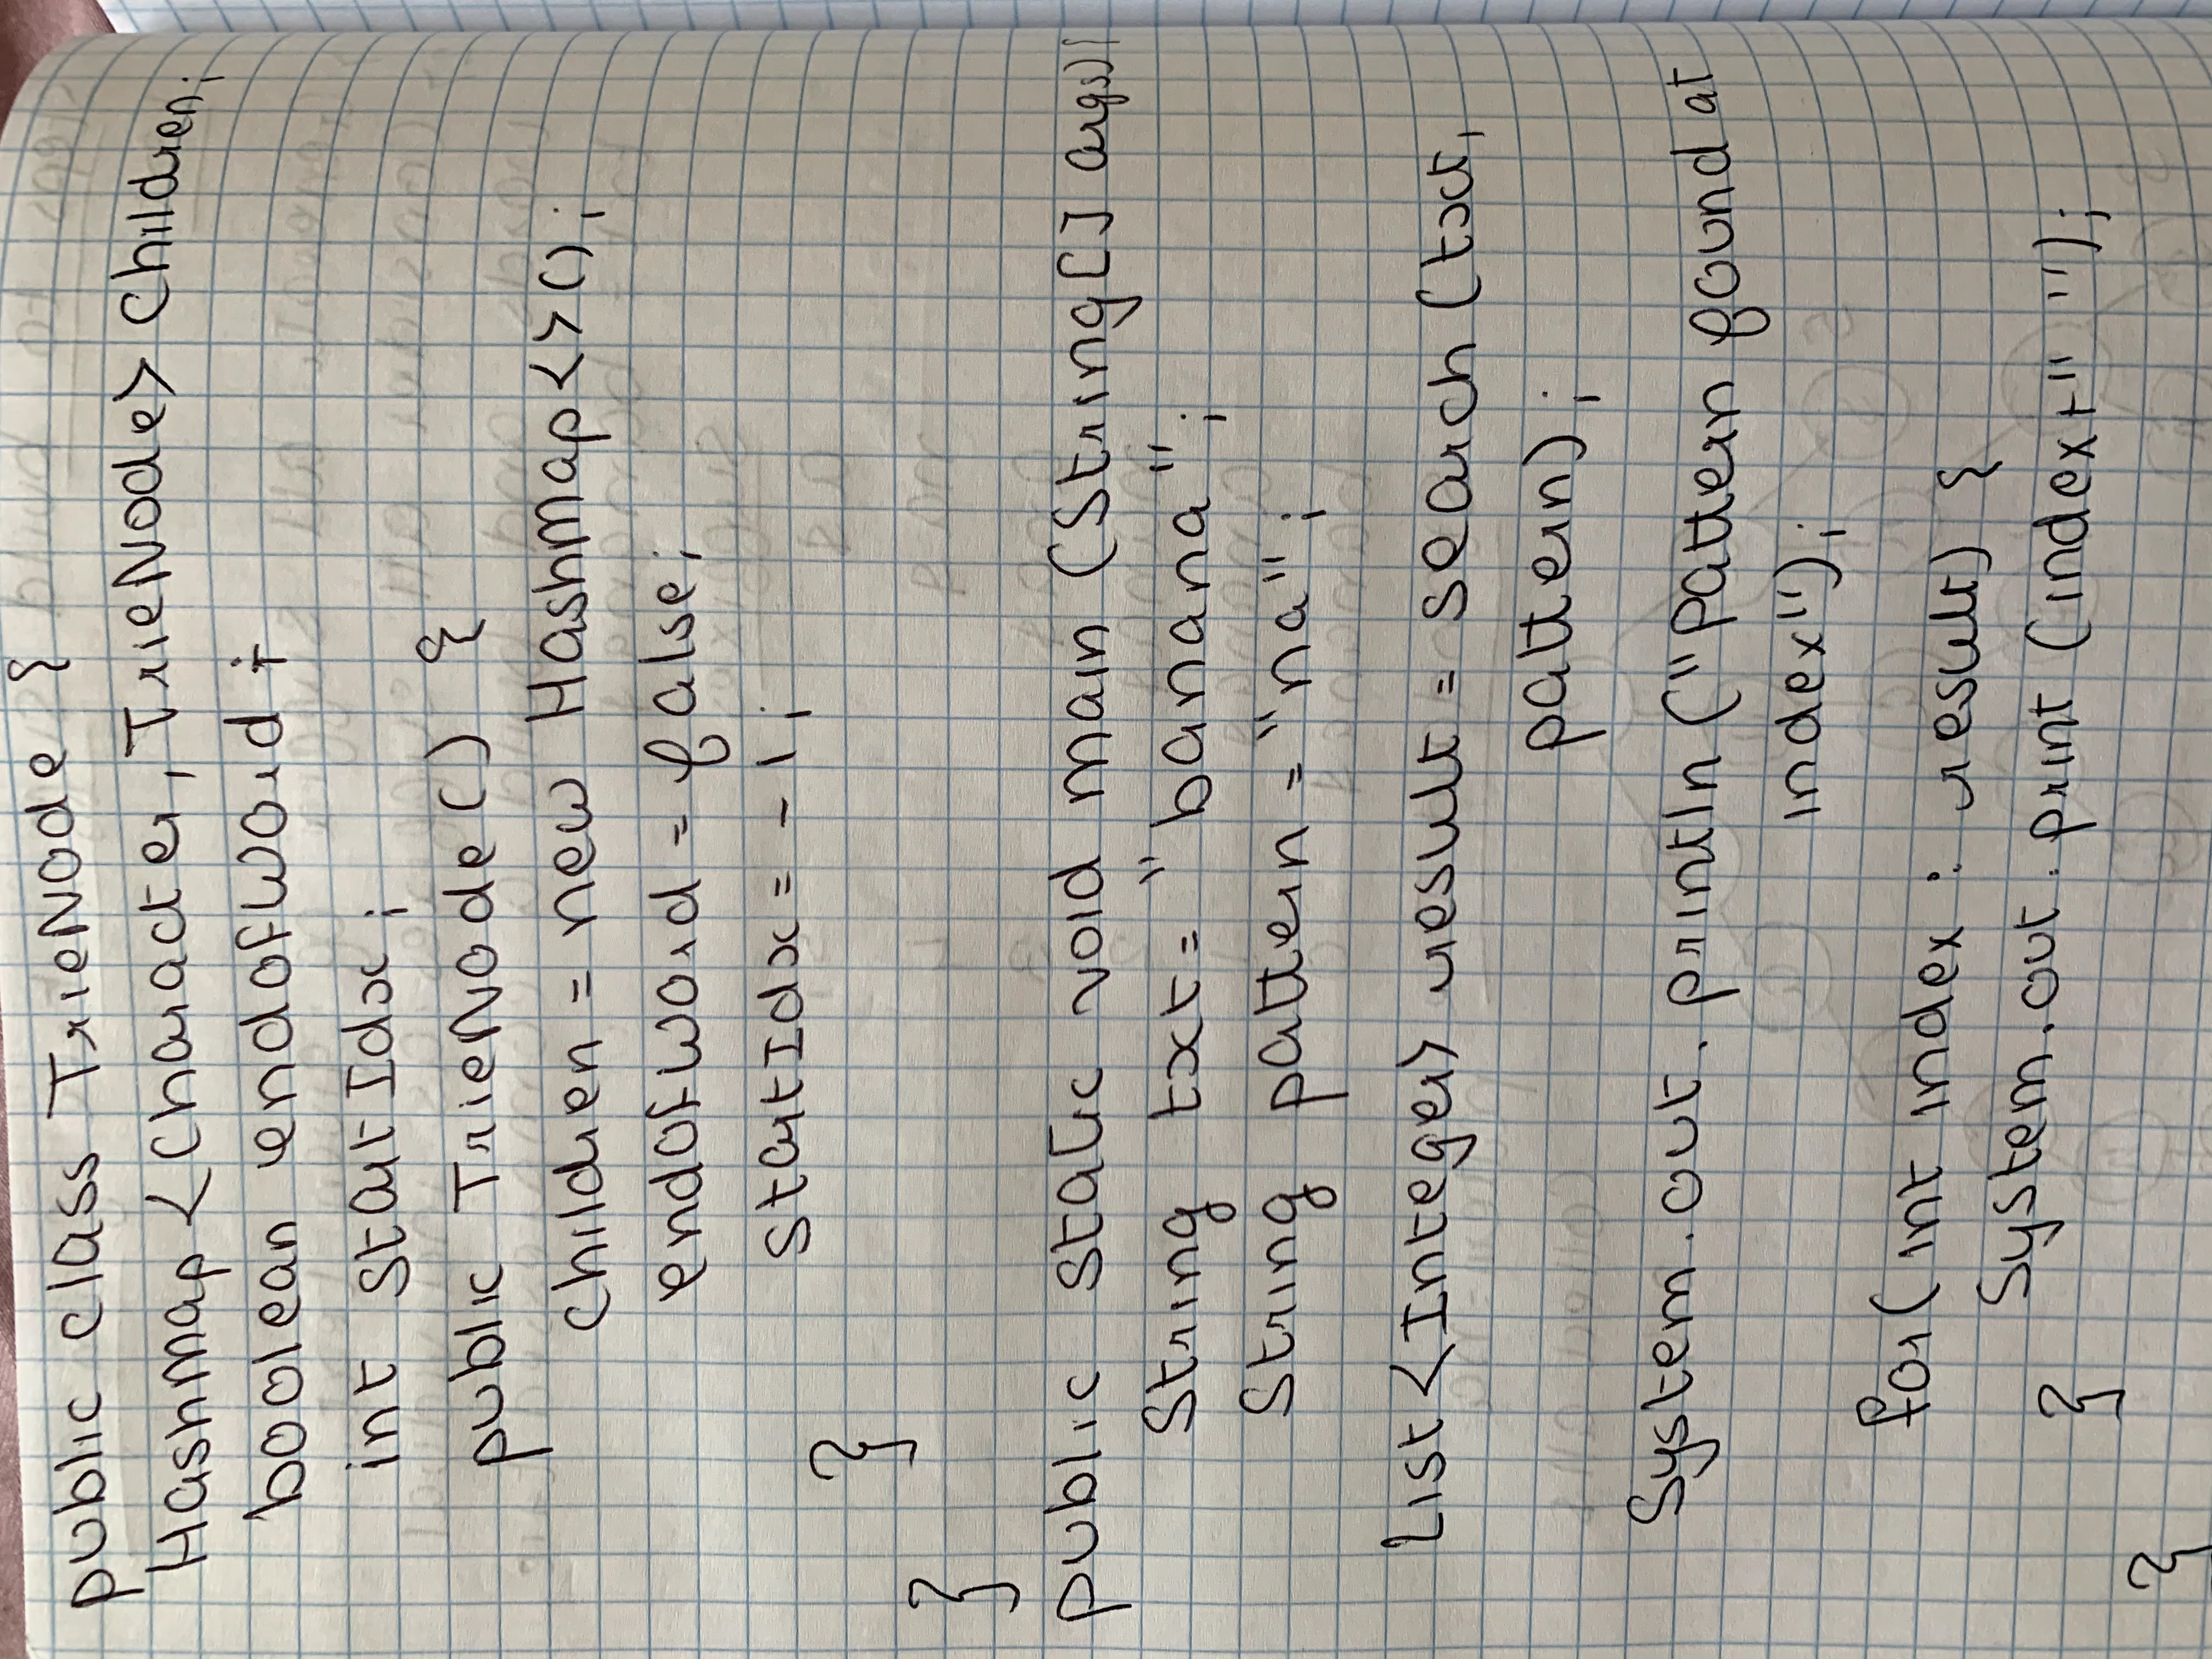 public class TrieNode {
HashMap<Character, TrieNode> children;
boolean endOfWord;
int startIdx;
public TrieNode() {
children = new HashMap<>();
endOfWord = false;
startIdx = -1;
}
}
public static void main (String[] args){
String txt = "banana";
String pattern = "na";
List<Integer> result = search (txt,
pattern);
System.out.println ("Pattern found at
index");
for( int index : result) {
System.out.print (index+" ");
}
}